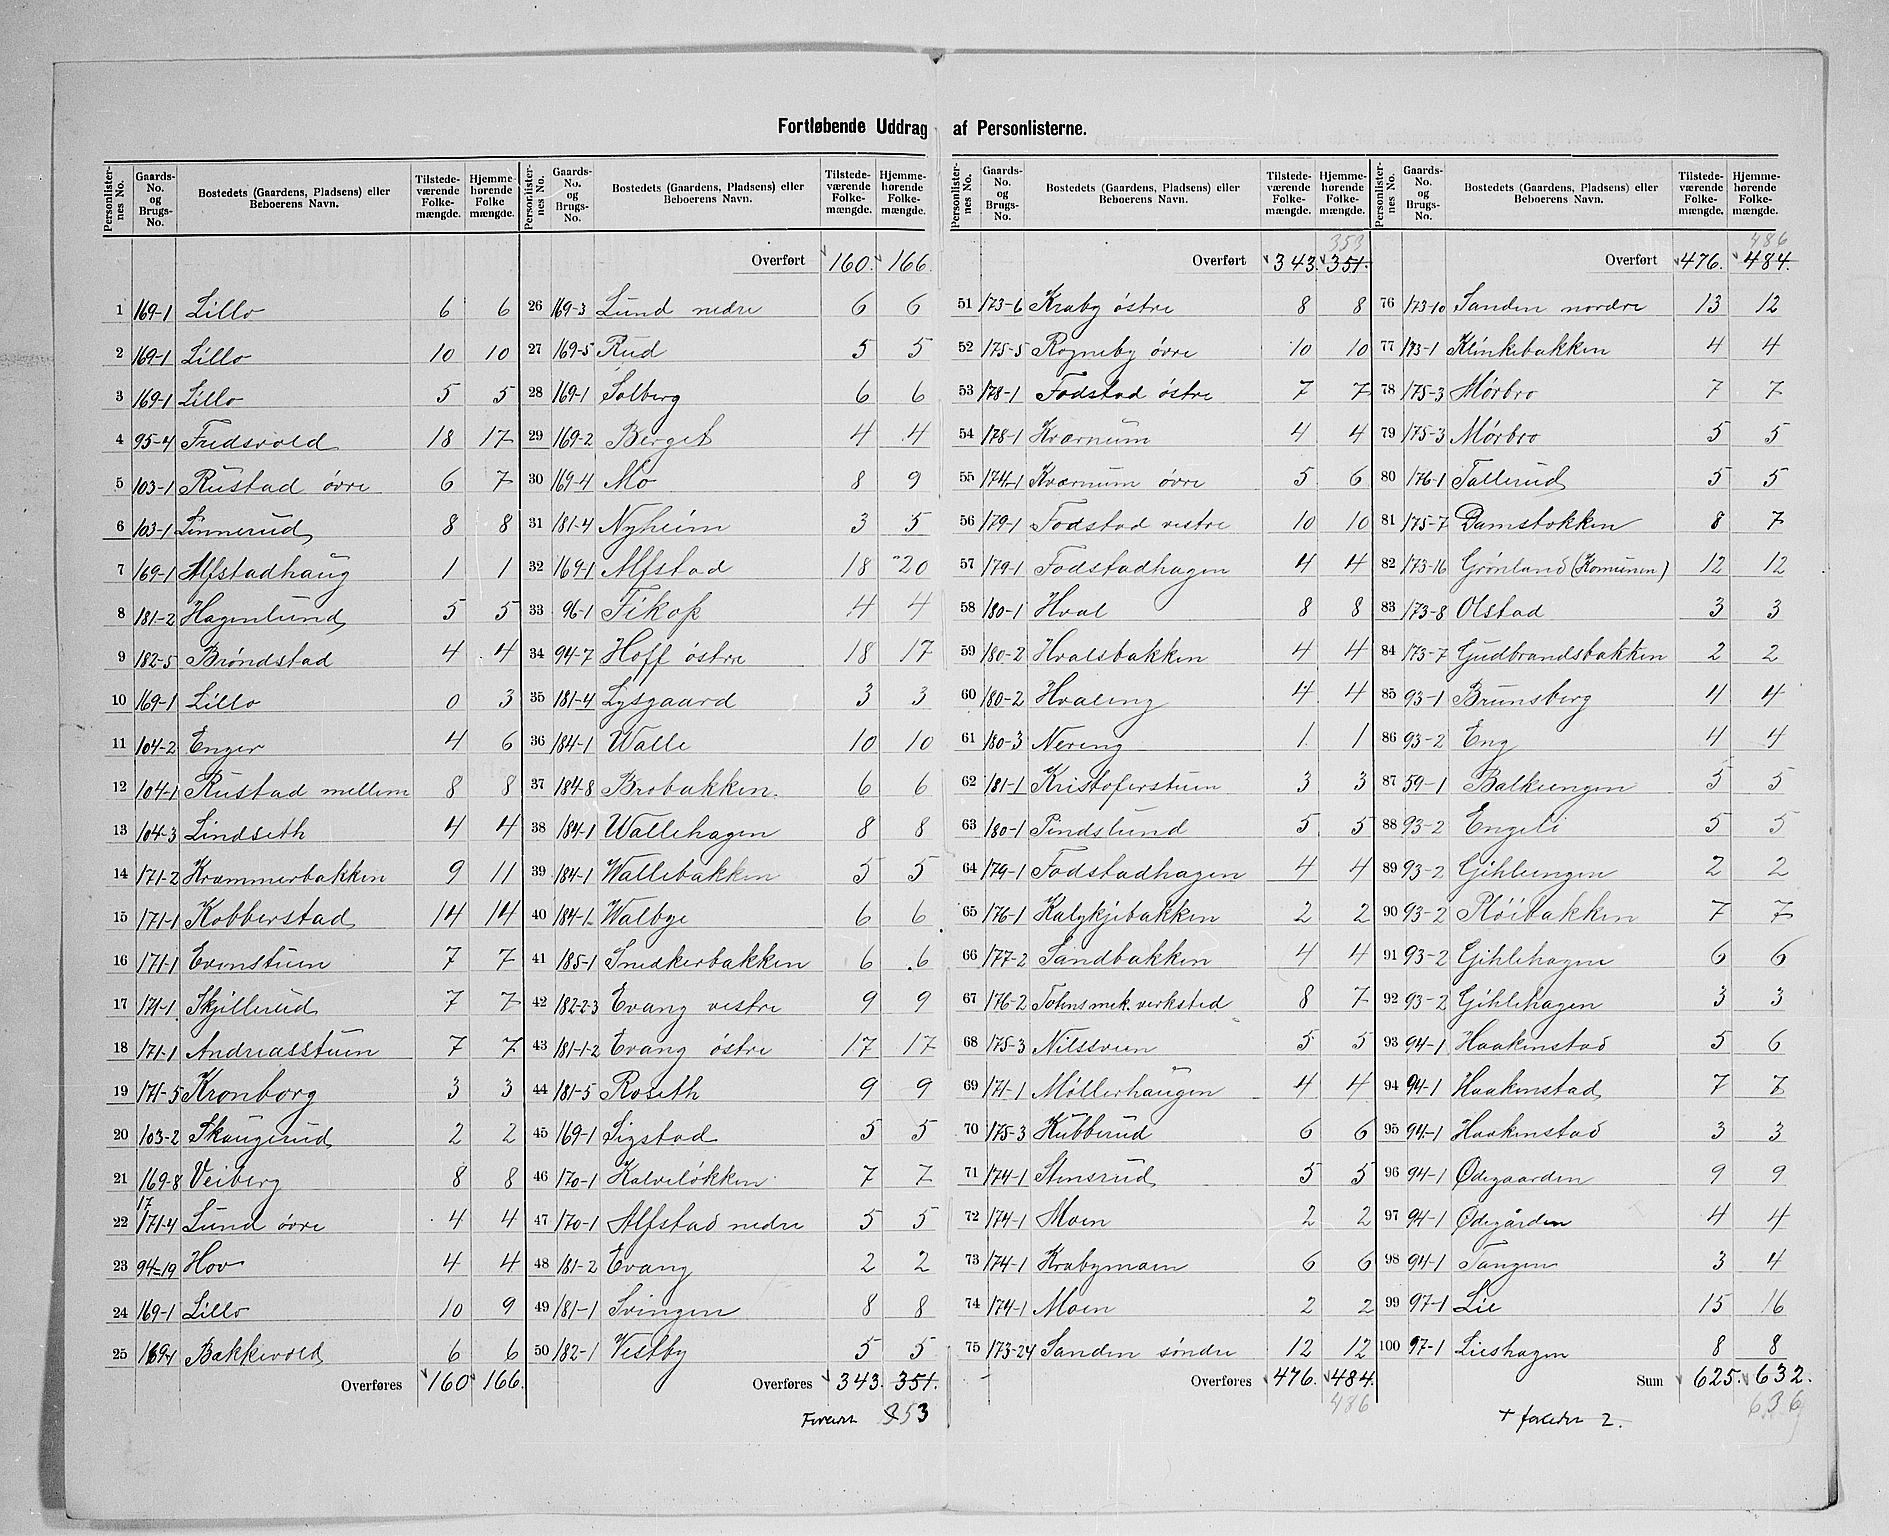 Fortløbende Uddrag af Personlisterne.
Personlisternes No. | Gaards-No. og Brugs-No. | Bostedets (Gaardens, Pladsens) eller Beboerens Navn. | Tilstedeværende Folkemængde. | Hjemmehørende Folkemængde.
Overført 160. 166.
Overført 343. 351. 353
Overført 476. 484. 486
1 169-1 Lillo 6 6
2 169-1 Lillo 10 10
3 169-1 Lillo 5 5
4 95-4 Fredsvold 18 17
5 103-1 Rustad øvre 6 7
6 103-1 Linnerud 8 8
7 169-1 Alfstadhaug 1 1
8 181-2 Hagenlund 5 5
9 182-5 Brøndstad 4 4
10 169-1 Lillo 0 3
11 104-2 Enger 4 6
12 104-1 Rustad mellem 8 8
13 104-3 Lindseth 4 4
14 171-2 Kræmmerbakken 9 11
15 171-1 Kobberstad 14 14
16 171-1 Evenstuen 7 7
17 171-1 Skjillerud 7 7
18 171-1 Andreasstuen 7 7
19 171-5 Kronborg 3 3
20 103-2 Skaugerud 2 2
21 169-8 Veiberg 8 8
22 171-4 Lund øvre 4 4
23 94-19 Hov 4 4
24 169-1 Lillo 10 9
25 169-1 Bakkevold 6 6
Overføres 160 166.
26 169-3 Lund nedre 6 6
27 169-5 Rud 5 5
28 169-1 Solberg 6 6
29 169-2 Berget 4 4
30 169-4 Mo 8 9
31 181-4 Nyheim 3 5
32 169-1 Alfstad 18 20
33 96-1 Fikop 4 4
34 94-7 Hoff østre 18 17
35 181-4 Lysgaard 3 3
36 184-1 Walle 10 10
37 184-8 Brobakken. 6 6
38 184-1 Wallehagen 8 8
39 184-1 Wallebakken 5 5
40 184-1 Walbye 6 6
41 185-1 Snedkerbakken 6 6
42 182-2-3 Evang vestre 9 9
43 181-1-2 Evang østre 17 17
44 181-5 Roseth 9 9
45 169-1 Sigstad 5 5
46 170-1 Kalveløkken 7 7
47 170-1 Alfstad nedre 5 5
48 181-2 Evang 2 2
49 181-1 Svingen 8 8
50 182-1 Vestby 5 5
Overføres 343. 351.
353
51 173-6 Kraby østre 8 8
52 175-5 Rogneby øvre 10 10
53 178-1 Fodstad østre 7 7
54 178-1 Kværnum 4 4
55 174-1 Kværnum øvre 5 6
56 179-1 Fodstad vestre 10 10
57 179-1 Fodstadhagen 4 4
58 180-1 Hval 8 8
59 180-2 Hvalsbakken 4 4
60 180-2 Hvaleng 4 4
61 180-3 Nereng 1 1
62 181-1 Kristoferstuen 3 3
63 180-1 Pindslund 5 5
64 179-1 Fodstadhagen 4 4
65 176-1 Kalykjebakken 2 2
66 177-2 Sandbakken 4 4
67 176-2 Tohns mek. verksted 8 7
68 175-3 Nilssveen 5 5
69 171-1 Møllerhaugen 4 4
70 175-3 Kubberud 6 6
71 174-1 Stensrud 5 5
72 174-1 Moen 2 2
73 174-1 Krabymoen 6 6
74 174-1 Moen 2 2
75 173-24 Sanden søndre 12 12
Overføres 476. 484.
486
76 173-10 Sanden nordre 13 12
77 173-1 Klinkebakken 4 4
78 175-3 Mørbro 7 7
79 175-3 Mørbro 5 5
80 176-1 Tallerud 5 5
81 175-7 Damstokken 8 7
82 173-16 Grønland (Komunen) 12 12
83 173-8 Olstad 3 3
84 173-7 Gudbrandsbakken 2 2
85 93-1 Brunsberg 4 4
86 93-2 Eng 4 4
87 59-1 Balkeengen 5 5
88 93-2 Engeli 5 5
89 93-2 Gihleengen 2 2
90 93-2 Pløibakken 7 7
91 93-2 Gihlehagen 6 6
92 93-2 Gihlehagen 3 3
93 94-1 Haakenstad 5 6
94 94-1 Haakenstad 7 7
95 94-1 Haakenstad 3 3
96 94-1 Ødegaarden 9 9
97 94-1 Ødegården 4 4
98 94-1 Tangen 3 4
99 97-1 Lie 15 16
100 97-1 Lieshagen 8 8
Sum 625. 632.
636